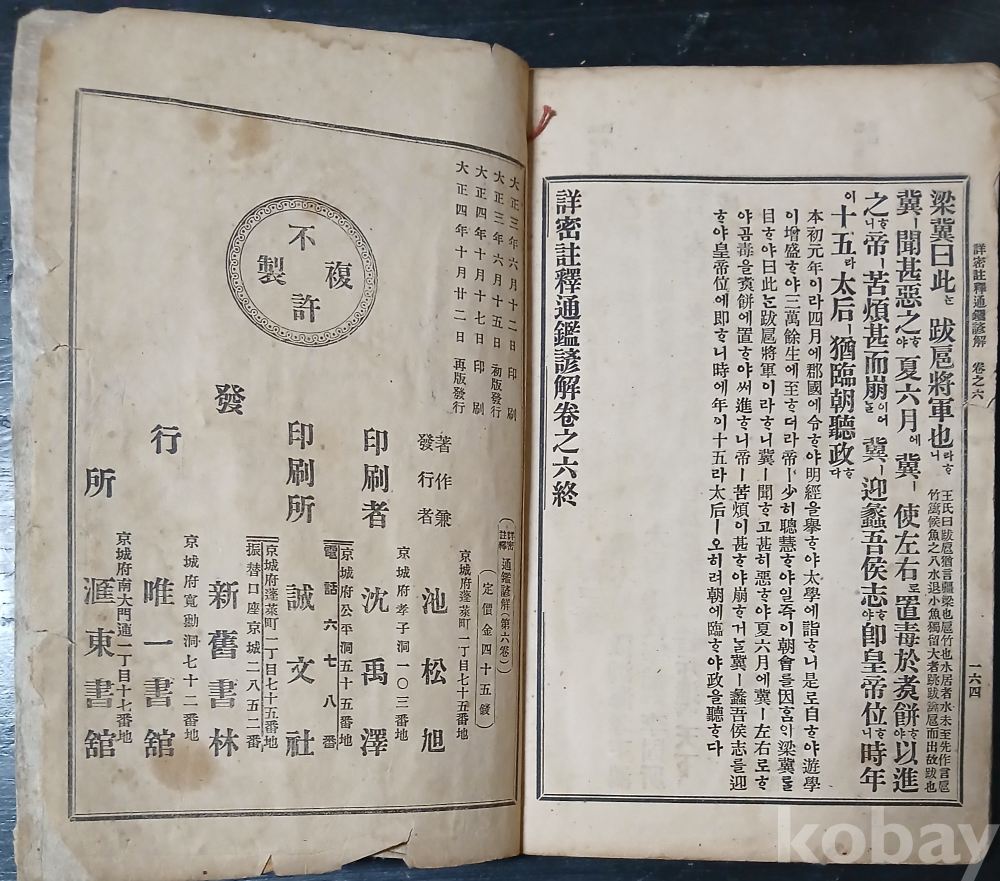 詳密註釋通鑑諺解 卷之六 一六四
梁冀曰此ᄂᆞᆫ 跋扈將軍也ㅣ라ᄒᆞ니
冀ㅣ聞甚惡之ᄒᆞ야 夏六月에 冀ㅣ 使左右로 置毒於煑餠ᄒᆞ야 以進
之ᄒᆞ니 帝ㅣ 苦煩甚而崩이어ᄂᆞᆯ 冀ㅣ 迎蠡吾侯志ᄒᆞ야 卽皇帝位ᄒᆞ니 時年
이 十五라 太后ㅣ 猶臨朝聽政ᄒᆞ다
本初元年이라四月에郡國에令ᄒᆞ야明經을擧ᄒᆞ야太學에詣ᄒᆞ니是로自ᄒᆞ야遊學
이增盛ᄒᆞ야三萬餘生에至ᄒᆞ더라帝ㅣ少히聰慧ᄒᆞ야일즉이朝會를因ᄒᆞᆷ이梁冀를
目ᄒᆞ야曰此ᄂᆞᆫ跋扈將軍이라ᄒᆞ니冀ㅣ聞ᄒᆞ고甚히惡ᄒᆞ야夏六月에冀ㅣ左右로ᄒᆞ
야곰毒을煑餠에置ᄒᆞ야써進ᄒᆞ니帝ㅣ苦煩이甚ᄒᆞ야崩ᄒᆞ거ᄂᆞᆯ冀ㅣ蠡吾侯志를迎
ᄒᆞ야皇帝位에即ᄒᆞ니時에年이十五라太后ㅣ오히려朝에臨ᄒᆞ야政을聽ᄒᆞ다
詳密註釋通鑑諺解卷之六終
大正三年六月十二日 印刷
大正三年六月十五日 初版發行
大正四年十月十七日 印刷
大正四年十月廿二日 再版發行
複製
不許
詳密註釋 通鑑諺解(第六卷)
定價金四十五錢
京城府蓬萊町一丁目七十五番地
著作兼發行者 池松旭
京城府孝子洞一〇三番地
印刷者 沈禹澤
京城府公平洞五十五番地
電話六七八番
印刷所 誠文社
發行所
京城府蓬萊町一丁目七十五番地
振替口座京城二八五二番
新舊書林
京城府寬勳洞七十二番地
唯一書舘
京城府南大門通一丁目十七番地
滙東書舘
kobay